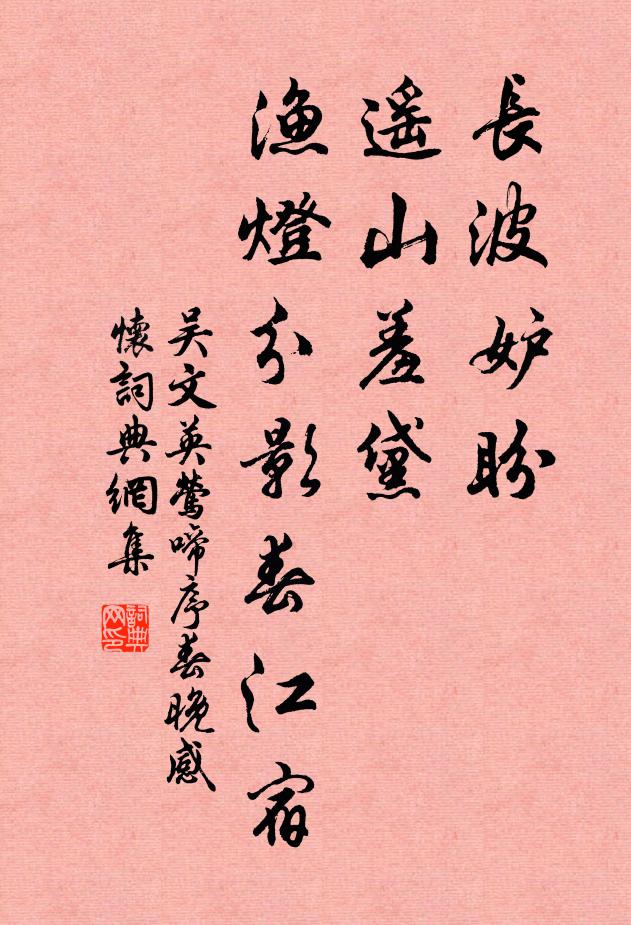 長波妒盼
遥山羞黛
漁燈分影春江宿
吴文英鶯啼序春晚感
懷詞典網集
詞典网印